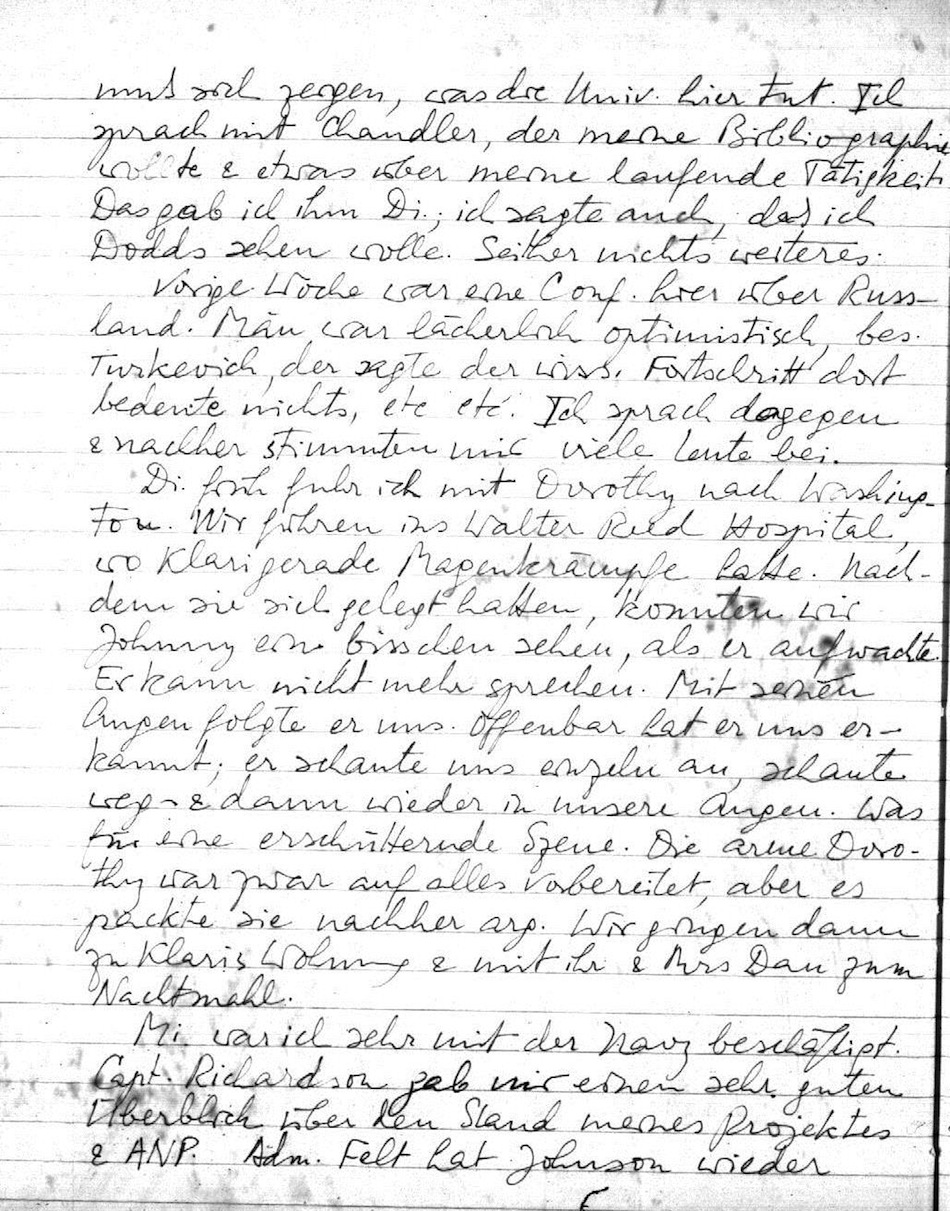 muß sich zeigen, was die Univ. hier tut. Ich
sprach mit Chandler, der meine Bibliographie
wollte & etwas über meine laufende Tätigkeit.
Das gab ich ihm Di.; ich sagte auch, daß ich
Dodds sehen wolle. Seither nichts weiteres.
Vorige Woche war eine Conf. hier über Russ-
land. Man war lächerlich optimistisch, bes.
Turkevich, der sagte der wiss. Fortschritt dort
bedeute nichts, etc etc. Ich sprach dagegen
& nachher stimmten mir viele Leute bei.
Di. früh fuhr ich mit Dorothy nach Washing-
ton. Wir fuhren ins Walter Reed Hospital,
wo Klari gerade Magenkrämpfe hatte. Nach-
dem sie sich gelegt hatten, konnten wir
Johnny ein bisschen sehen, als er aufwachte.
Er kann nicht mehr sprechen. Mit seinen
Augen folgte er uns. Offenbar hat er uns er-
kannt; er schaute uns einzeln an, schaute
weg - & dann wieder in unsere Augen. Was
für eine erschütternde Szene. Die arme Doro-
thy war zwar auf alles vorbereitet, aber es
packte sie nachher arg. Wir gingen dann
zu Klaris Wohnung & mit ihr & Mrs Dan zum
Nachtmahl.
Mi. war ich sehr mit der Navy beschäftigt.
Capt. Richardson gab mir einen sehr guten
Überblick über den Stand meines Projektes
& ANP. Adm. Felt hat Johnson wieder